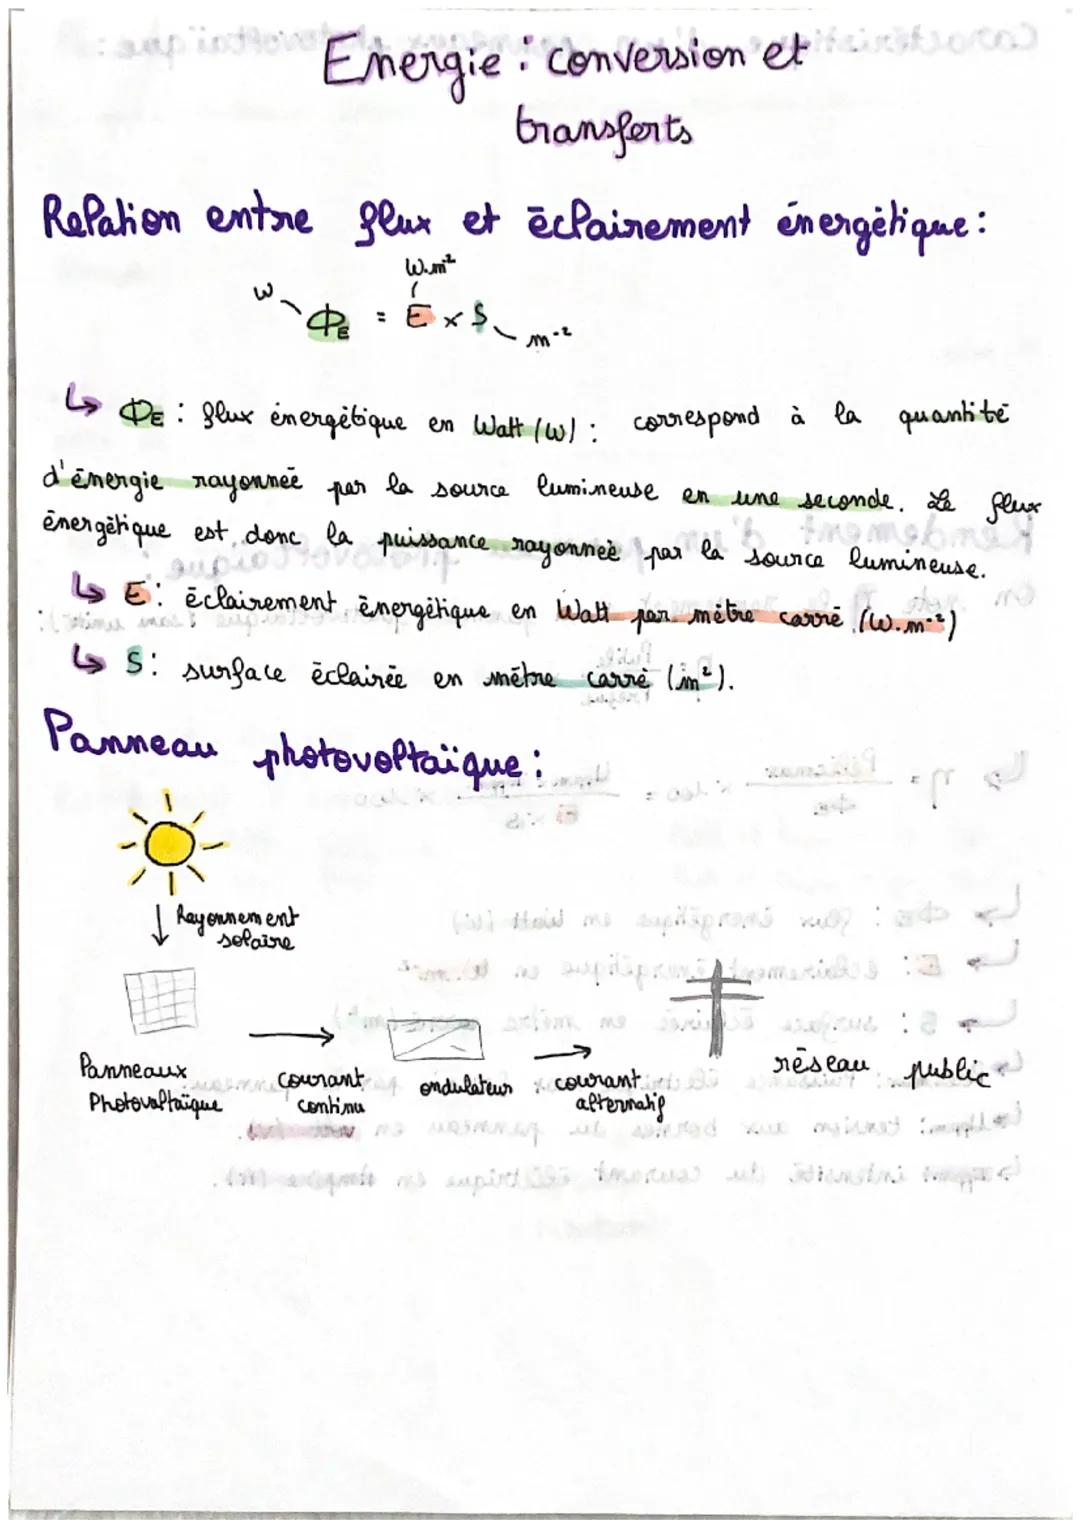 Energie : conversion et
transferts
Relation entre flux et éclairement énergétique :
W.m²
W
ΦE = E × S
m⁻²
↳ ΦE : flux énergétique en Watt (W) : correspond à la quantité
d'énergie rayonnée par la source lumineuse en une seconde. Le flux
énergétique est donc la puissance rayonnée par la source lumineuse.
↳ E : éclairement énergétique en Watt par mètre carré (W.m⁻²)
↳ S : surface éclairée en mètre carré (m²).
Panneau photovoltaïque :
Rayonnement
solaire
Panneaux
Photovoltaïque
courant
continu
ondulateur
courant
alternatif
réseau public